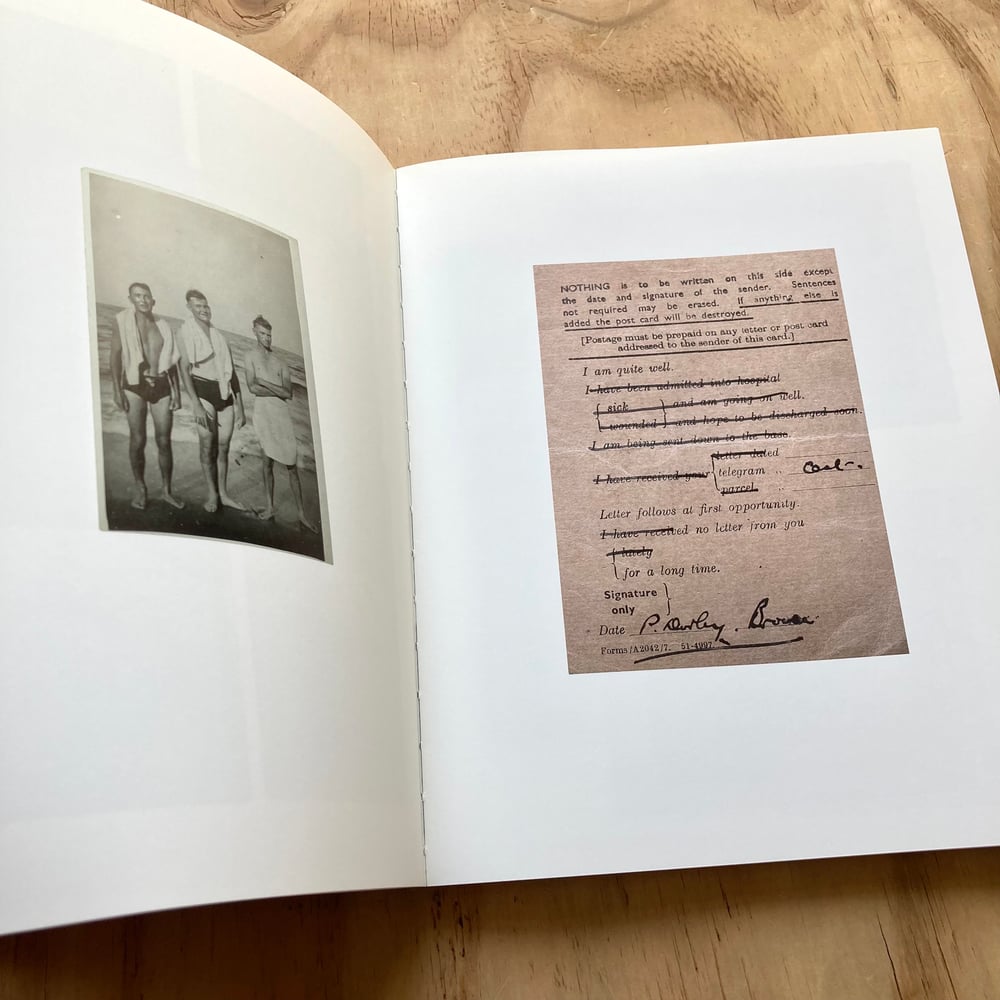 NOTHING is to be written on this side except
the date and signature of the sender. Sentences
not required may be erased. If anything else is
added the post card will be destroyed.
[Postage must be prepaid on any letter or post card
addressed to the sender of this card.]
I am quite well.
I have been admitted into hospital
sick and am going on well.
wounded and hope to be discharged soon.
I am being sent down to the base.
letter dated
I have received your telegram ,,
parcel ,,
Letter follows at first opportunity.
I have received no letter from you
lately
for a long time.
Signature
only
Date P. Brown.
Forms/A2042/7. 51-4997